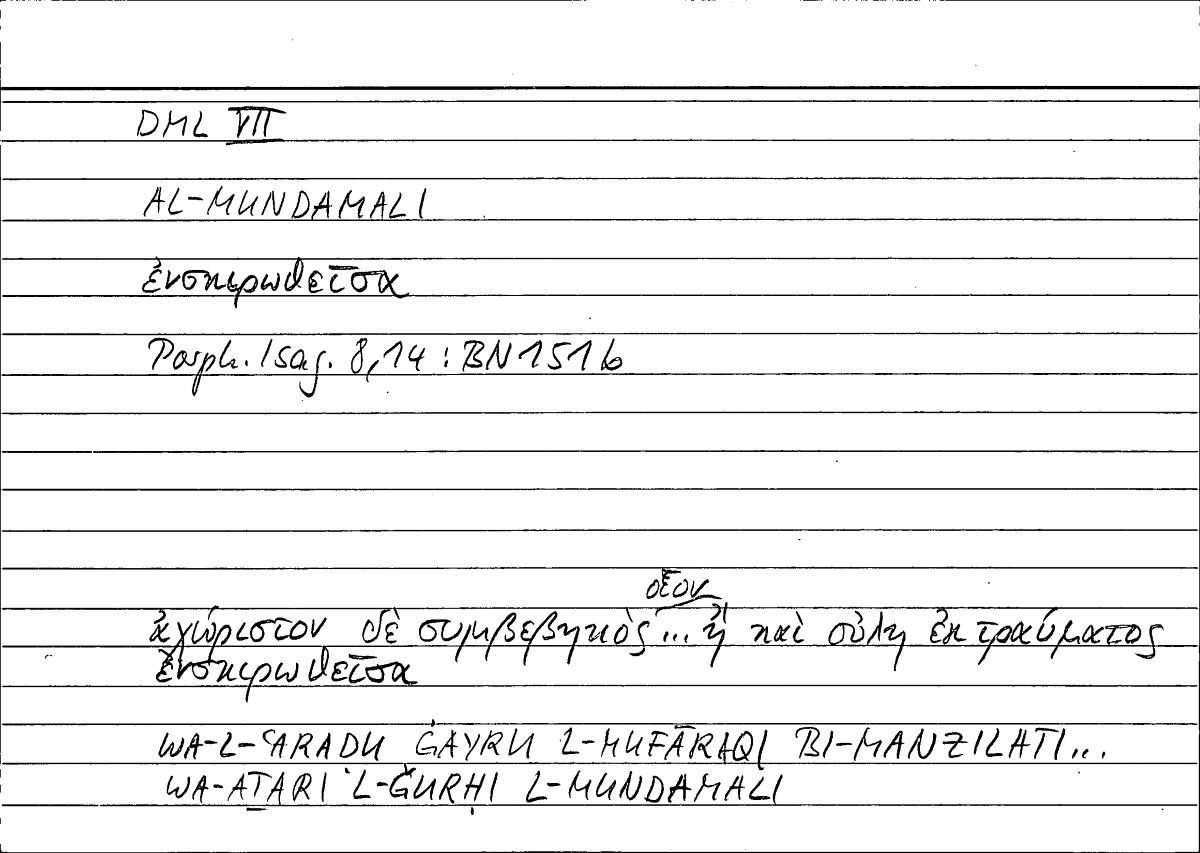 DML VII
AL-MUNDAMALI
ἐνσκιρωθεῖσα
Porph. Isag. 8,14 : BN 151b
οἷον
ἀχώριστον δὲ συμβεβηκὸς ... ἢ καὶ οὐλὴ ἐκ τραύματος
ἐνσκιρωθεῖσα
WA-L-ʿARAḌU ĠAYRU L-MUFĀRAQI BI-MANZILATI...
WA-AṮARI 'L-ǦURḤI L-MUNDAMALI